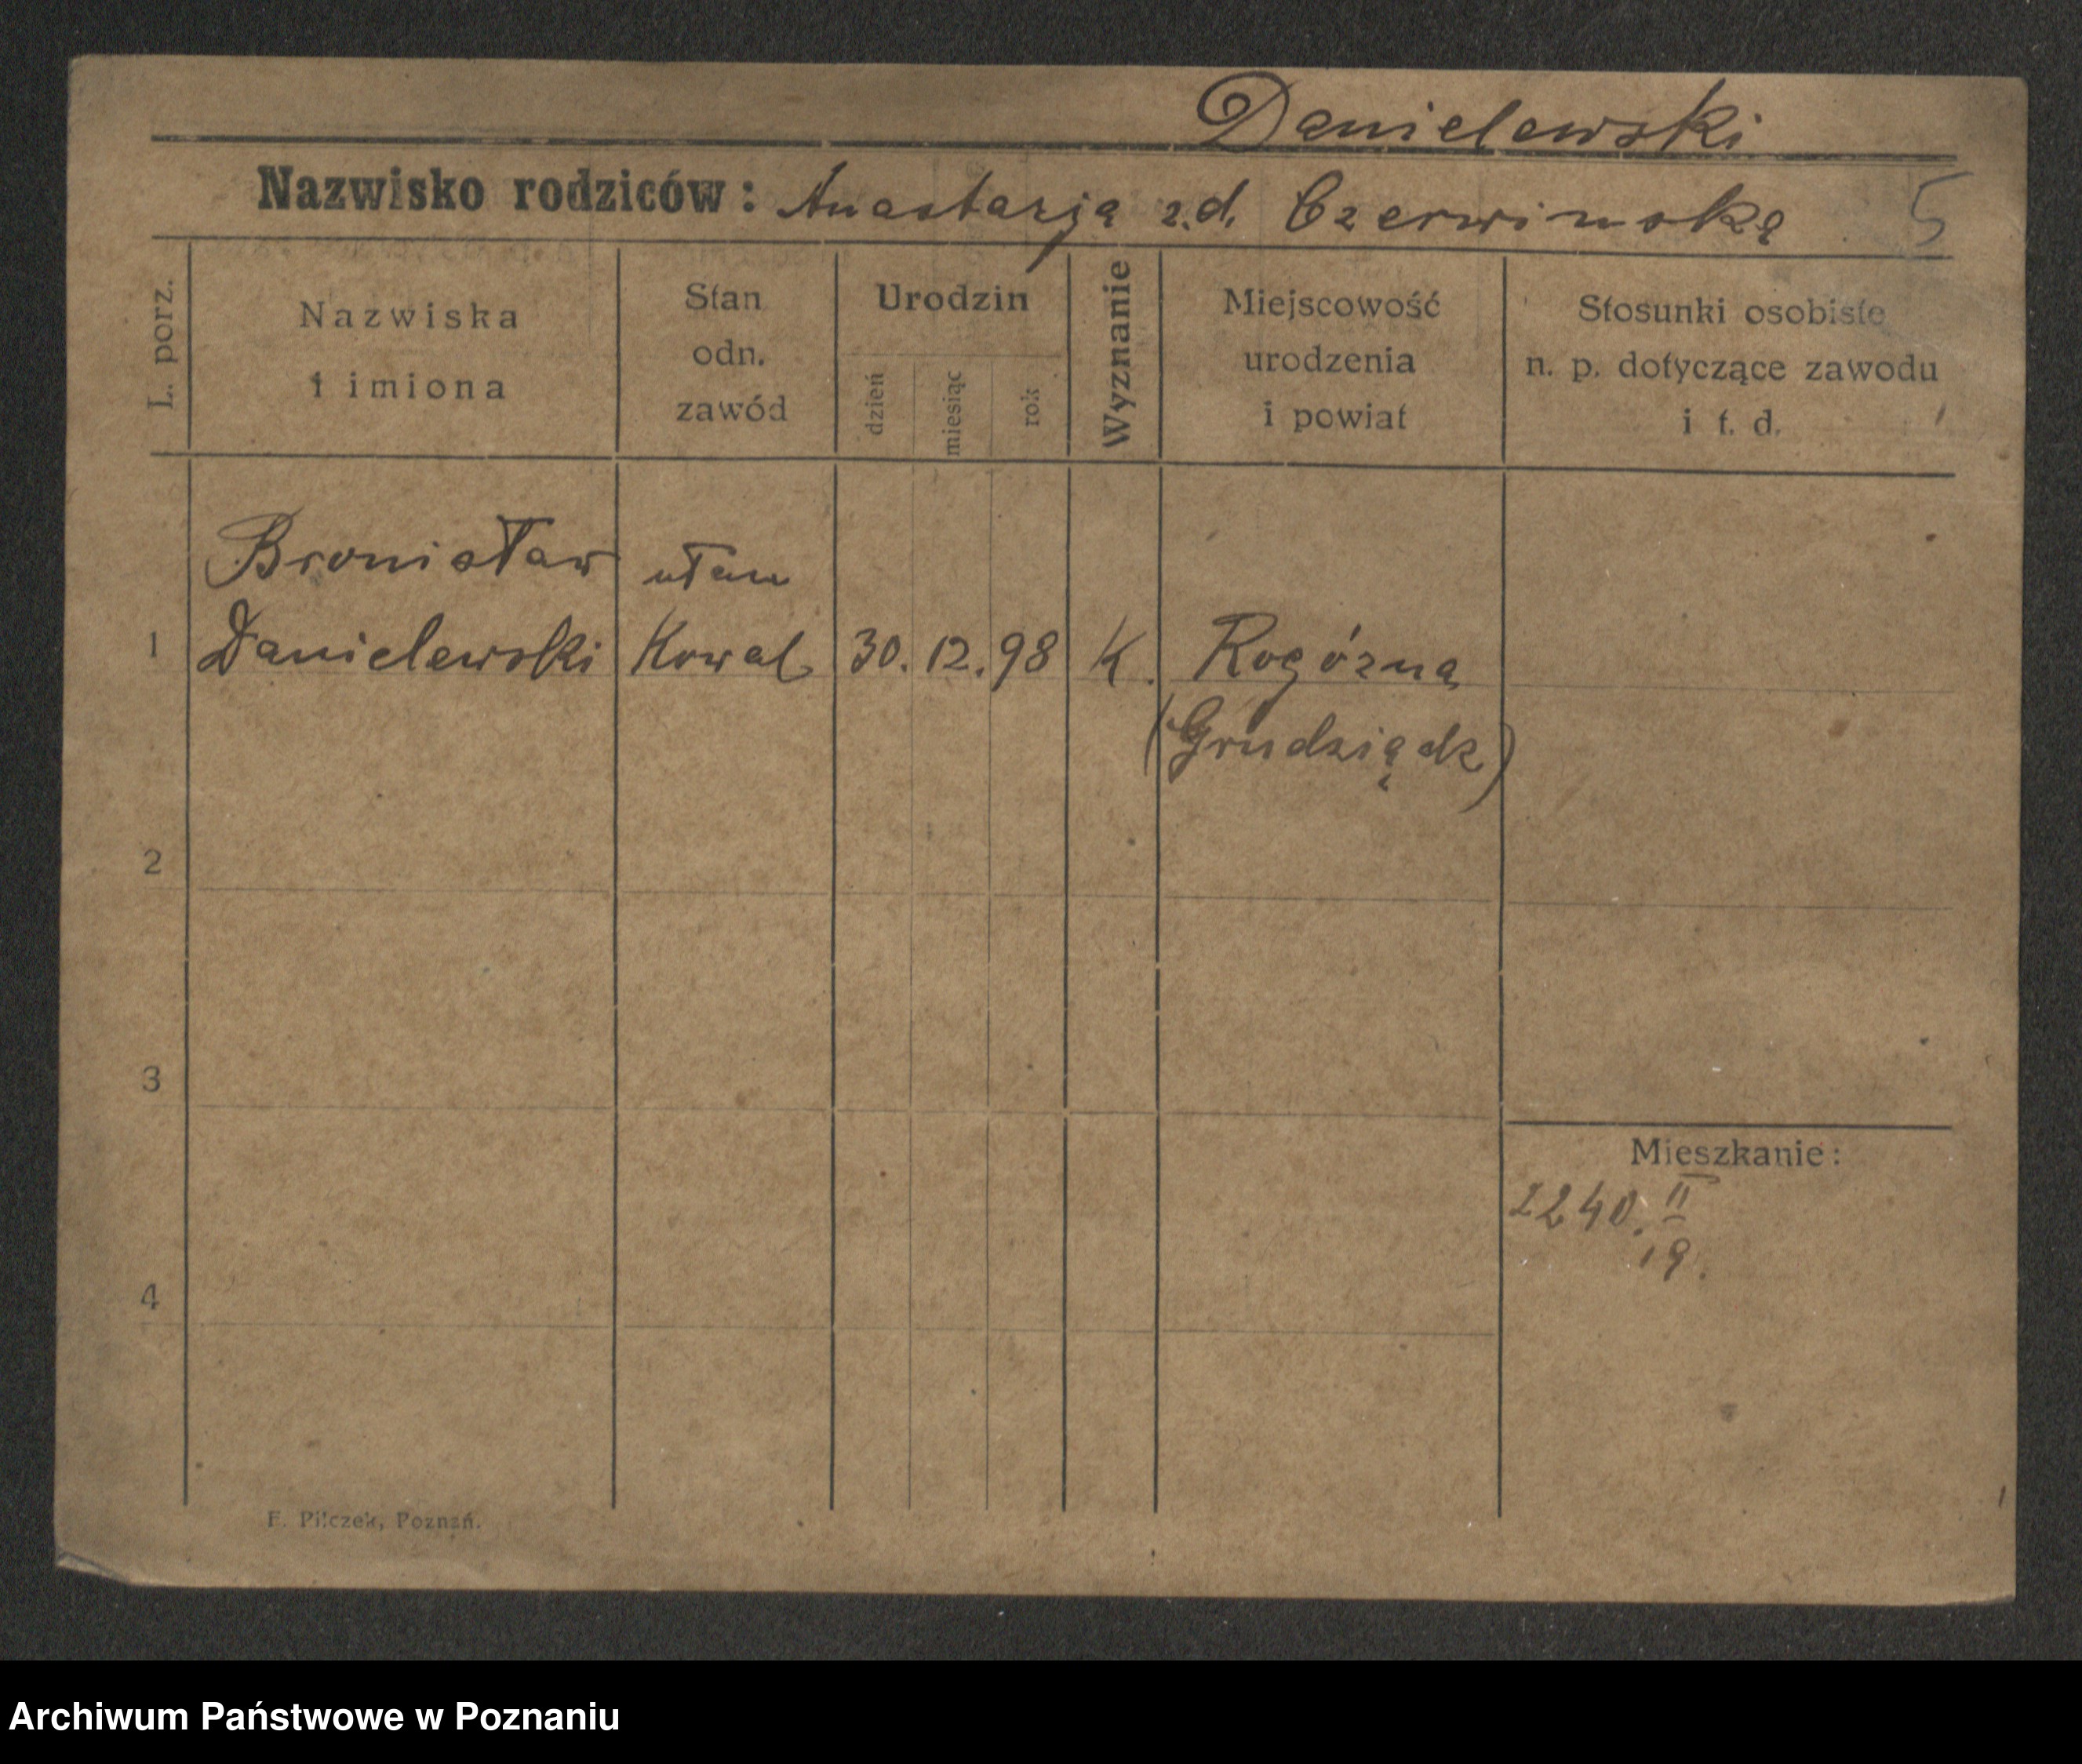 Danielewski
Nazwisko rodziców: Anastazja z.d. Czerwinska 5
L. porz.
Nazwiska
i imiona
Stan
odn.
zawód
Urodzin
dzień
miesiąc
rok
Wyznanie
Miejscowość
urodzenia
i powiat
Stosunki osobiste
n. p. dotyczące zawodu
i t. d.
Bronisław ułan
1 Danielewski Kowal 30. 12. 98 K. Rogózna
(Grudziądz)
2
3
Mieszkanie:
2240. II
19.
4
F. Pilczek, Poznań.
Archiwum Państwowe w Poznaniu